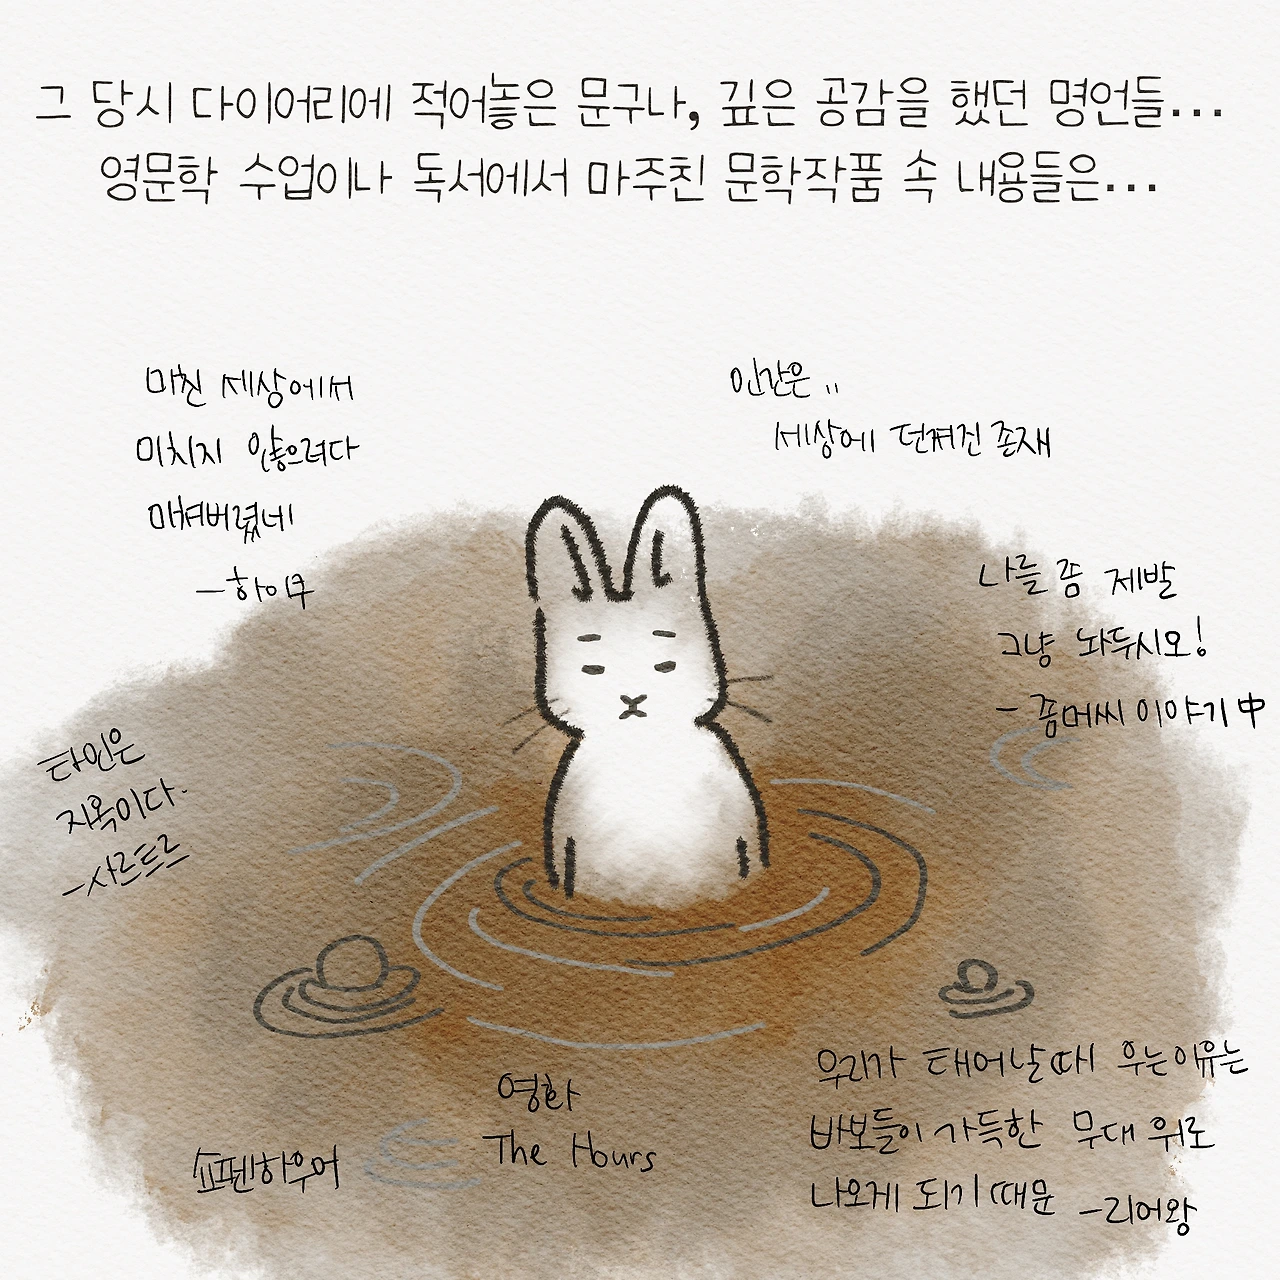 그 당시 다이어리에 적어놓은 문구나, 깊은 공감을 했던 명언들...
영문학 수업이나 독서에서 마주친 문학작품 속 내용들은...
미친 세상에서
미치지 않으려다
미쳐버렸네
-하이쿠
인간은..
세상에 던져진 존재
나를 좀 제발
그냥 놔두시오!
- 좀머씨 이야기 中
타인은
지옥이다.
-사르트르
쇼펜하우어
영화
The Hours
우리가 태어날때 우는이유는
바보들이 가득한 무대 위로
나오게 되기 때문 -리어왕